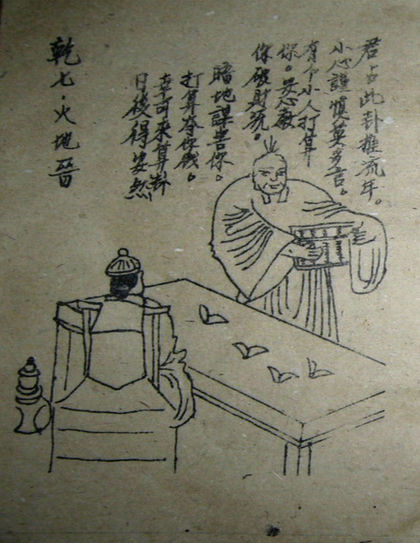 君占此卦推流年。
小心謹慎莫多言。
有个小人打算
你。安心
你破財
暗地謀害你。
打算夺你錢。
幸可來算卦
日後得安然
乾七·火地晉